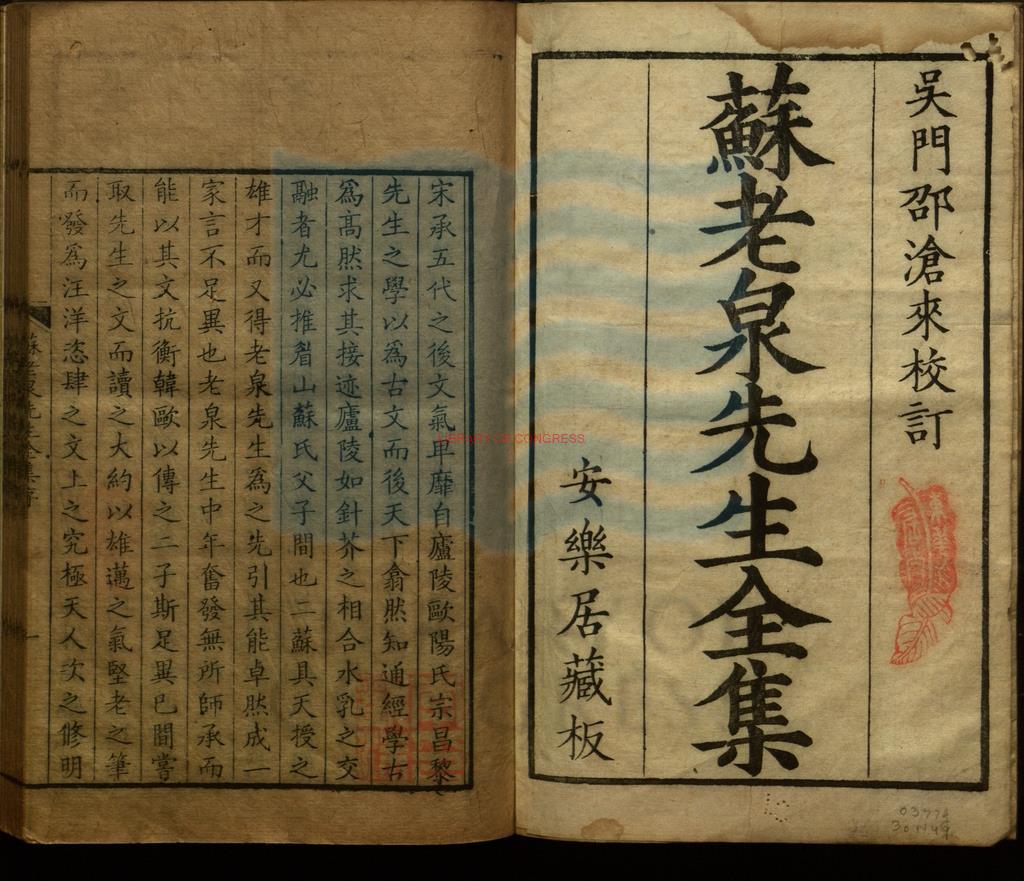 吳門邵滄來校訂
蘇老泉先生全集
安樂居藏板
宋承五代之後文氣卑靡自廬陵歐陽氏宗昌黎
先生之學以爲古文而後天下翕然知通經學古
爲髙然求其接迹廬陵如針芥之相合水乳之交
融者尤必推眉山蘇氏父子間也二蘇具天授之
雄才而又得老泉先生爲之先引其能卓然成一
家言不足異也老泉先生中年奮發無所師承而
能以其文抗衡韓歐以傳之二子斯足異已間嘗
取先生之文而讀之大約以雄邁之氣堅老之筆
而發爲汪洋恣肆之文上之究極天人次之修明
蘇老泉先生全集序
一
LIBRARY OF CONGRESS